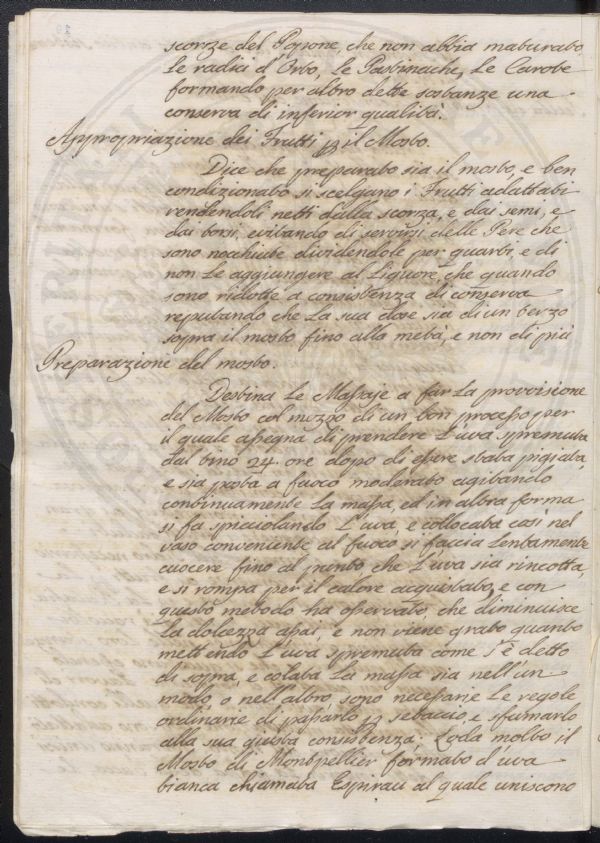 scorze del Popone, che non abbia maturato,
Le radici d'Orto, Le Pastinache, Le Carote
formando per altro dette sostanze una
conserva di inferior qualità.
Appropriazione dei Frutti p il Mosto.
Dice che preparato sia il mosto, e ben
condizionato si scelgano i Frutti adattati
rendendoli netti dalla scorza, e dai semi, e
dai torsi, evitando di servirsi delle Pere che
sono nochiute dividendole per quarti, e di
non Le aggiungere al Liquore, che quando
sono ridotte a consistenza di conserva
reputando che La sua dose sia di un terzo
sopra il mosto fino alla metà, e non di più
Preparazione del mosto.
Destina Le Massaje a far La provvisione
del Mosto col mezzo di un bon processo per
il quale assegna di prendere L'uva spremuta
dal tino 24. ore dopo di essere stata pigiata,
e sia posta a fuoco moderato agitando
continuamente La massa, ed in altra forma
si fa spiciolando L'uva, e collocata così nel
vaso conveniente al fuoco si faccia Lentamente
cuocere fino al punto che L'uva sia rincotta,
e si rompa per il calore acquistato, e con
questo metodo ha osservato, che diminuisce
La dolcezza assai, e non viene grato quanto
mettendo L'uva spremuta come s'è detto
di sopra, e colata La massa sia nell'un
modo, o nell'altro sono necessarie Le regole
ordinarie di passarlo p setaccio, e sfumarlo
alla sua giusta consistenza; Loda molto il
Mosto di Montpellier formato d'uva
bianca chiamata Espirau al quale uniscono